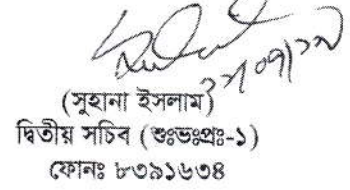 (সুহানা ইসলাম)
দ্বিতীয় সচিব (শুঃভঃপ্রঃ-১)
ফোনঃ ৮৩৯১৬৩৪